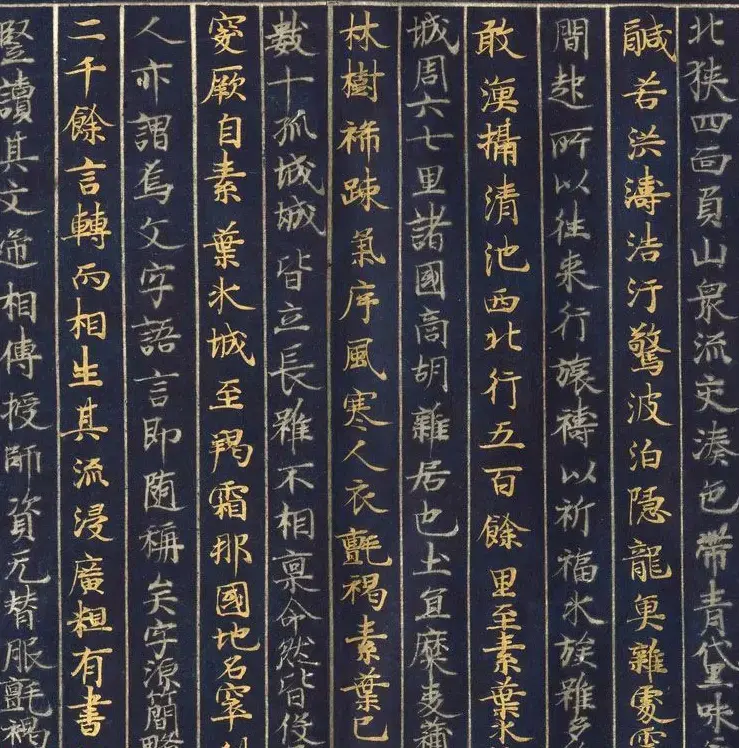 北狹四面負山衆流交湊色帶青黛味
鹹若洪濤浩汙驚波泊隱龍魚雜處靈
間赴所以往来行旅禱以祈福水族雖多
敢漁捕清池西北行五百餘里至素葉水
城周六七里諸國商胡雜居也土宜糜麦蒲
林樹稀踈氣序風寒人衣氈褐素葉已
數十孤城城皆立長雖不相稟命然皆役
突厥自素葉水城至羯霜那國地名窣利
人亦謂焉文字語言即随稱矣字源簡略
二千餘言轉而相生其流浸廣粗有書
竪讀其文逓相傳授師資无替服氈褐